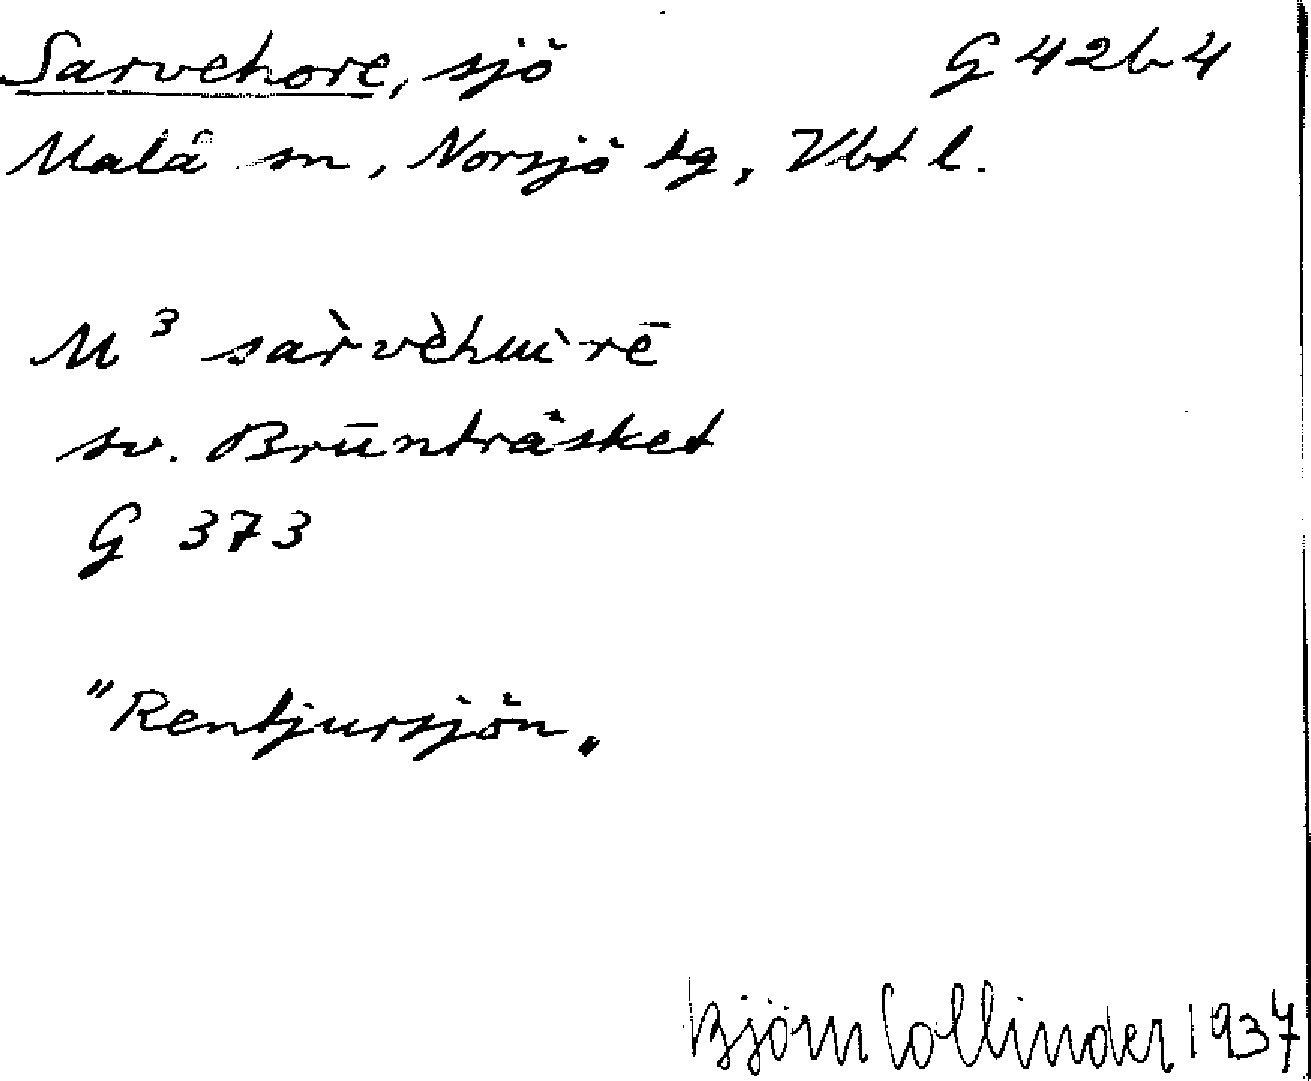 Sarvehore, sjö G 42b4
Malå sn, Norsjö tg, Vbt l.
M³ sar̀vèhɯ̀rē
sv. Brūnträsket
G 373
"Rentjursjön„
Björn Collinder 1937